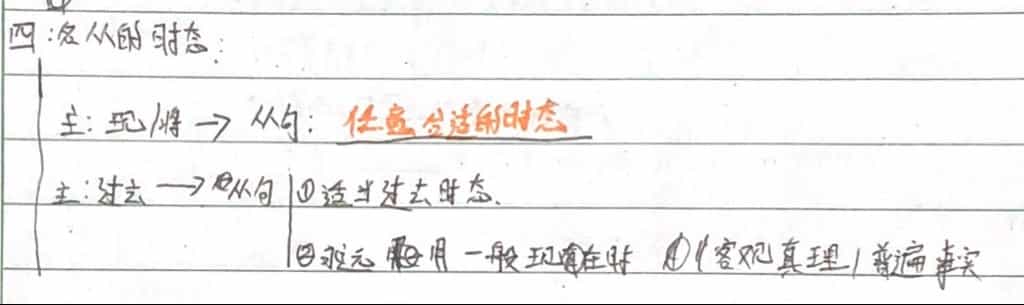 四:名从的时态:
主:现/将→从句:任意合适的时态
主:过去→从句 ①适当过去时态.
② 用一般现在时 (客观真理/普遍事实